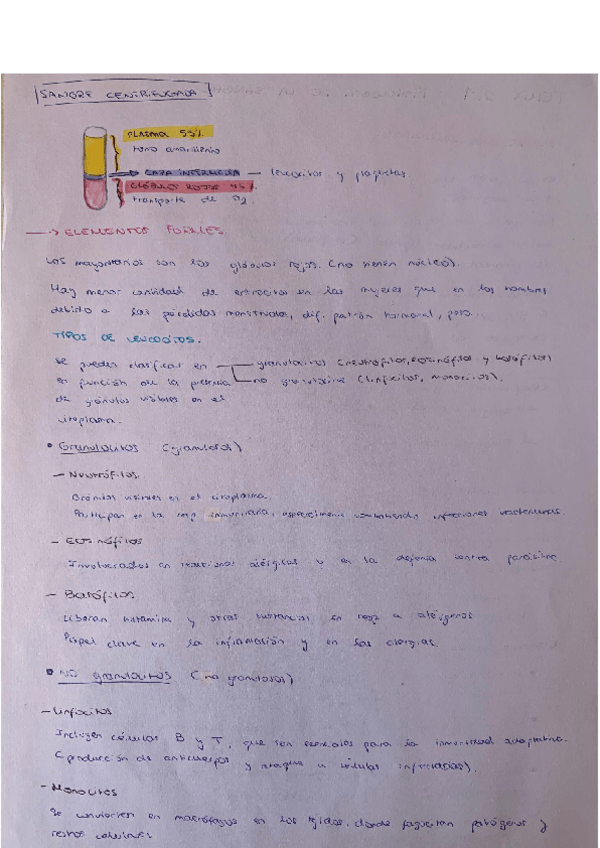 SANGRE CENTRIFUGADA
PLASMA 55%
tono amarillento
CAPA INTERMEDIA — leucocitos y plaquetas
GLÓBULOS ROJOS 45%
transporte de O2.
→ ELEMENTOS FORMES
Los mayoritarios son los glóbulos rojos. (no tienen núcleo).
Hay menor cantidad de eritrocitos en las mujeres que en los hombres
debido a las pérdidas menstruales, dif. patrón hormonal, peso.
TIPOS DE LEUCOCITOS.
Se pueden clasificar en — granulocitos (neutrófilos, eosinófilos y basófilos)
en función de la presencia — no granulocitos (linfocitos, monocitos).
de gránulos visibles en el
citoplasma.
• Granulocitos (granulosos)
- Neutrófilos
Gránulos visibles en el citoplasma.
Participan en la resp. inmunitaria, especialmente combatiendo infecciones bacterianas.
- Eosinófilos
Involucrados en reacciones alérgicas y en la defensa contra parásitos.
- Basófilos
Liberan histamina y otras sustancias en resp. a alérgenos
Papel clave en la inflamación y en las alergias.
• No granulocitos (no granulosos)
- Linfocitos
Incluyen células B y T, que son esenciales para la inmunidad adaptativa.
(producción de anticuerpos y ataque a células infectadas).
- Monocitos
Se convierten en macrófagos en los tejidos, donde fagocitan patógenos y
restos celulares